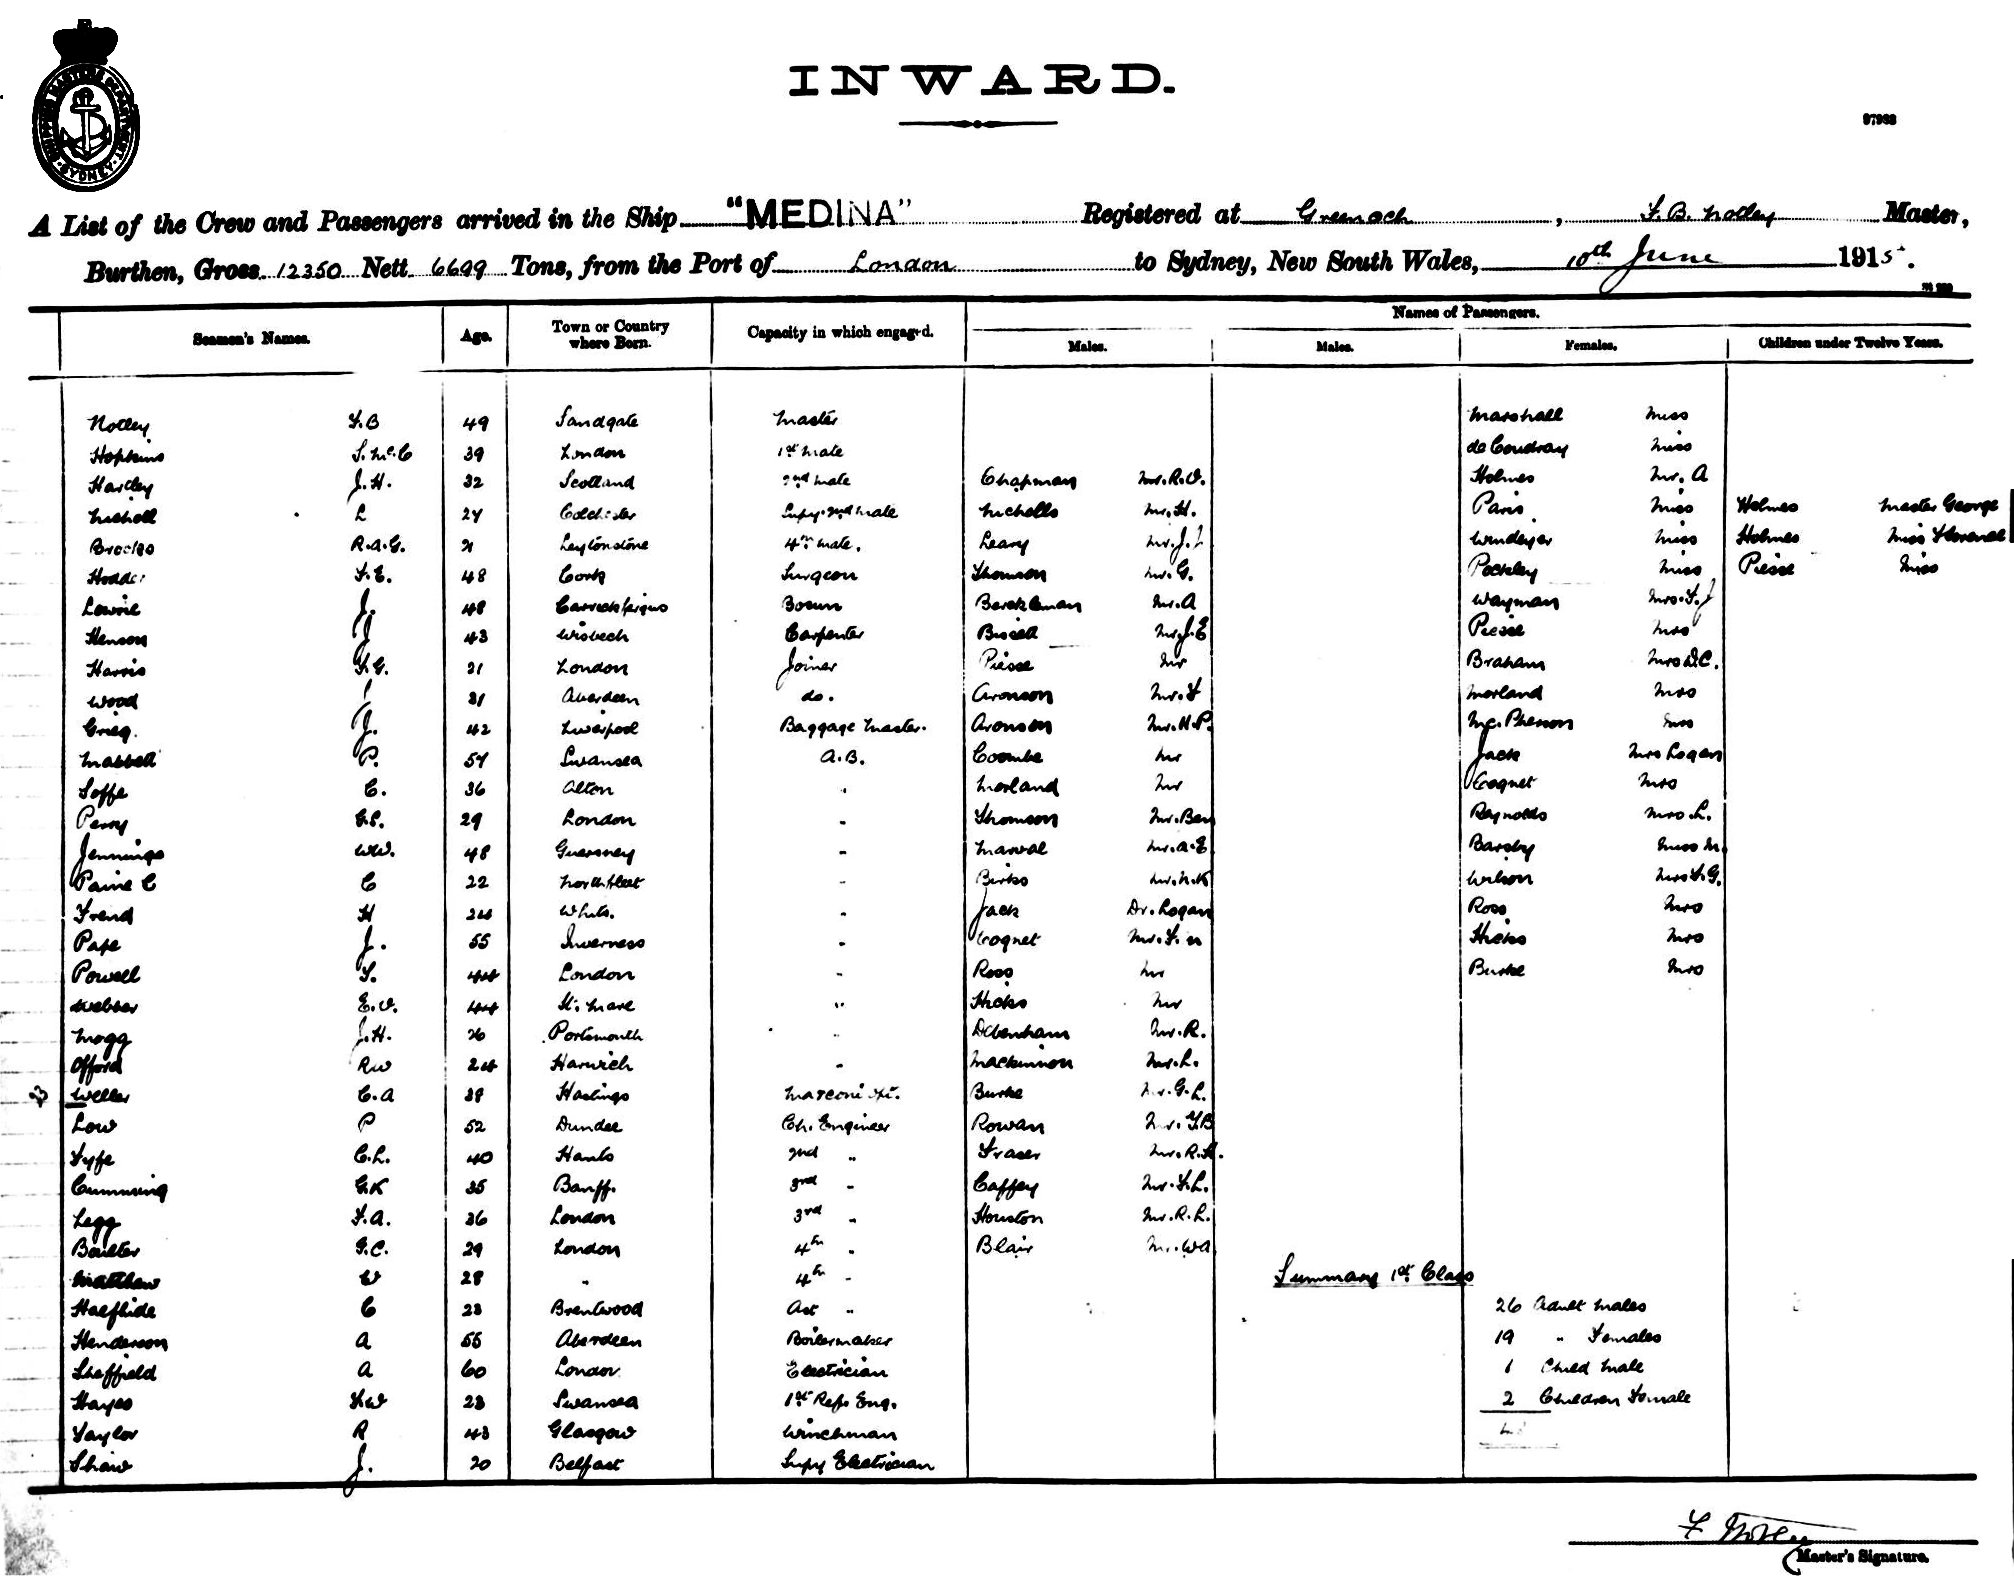 SHIPPING MASTERS DEPARTMENT · SYDNEY ·
INWARD.
A List of the Crew and Passengers arrived in the Ship "MEDINA" Registered at Greenock, F.B. Notley Master,
Burthen, Gross 12350 Nett 6699 Tons, from the Port of London to Sydney, New South Wales, 10th June 1915.
Seamen's Names. Age. Town or Country where Born. Capacity in which engaged. Names of Passengers.
Males. Males. Females. Children under Twelve Years.
Notley F.B 49 Sandgate Master Marshall Miss
Hopkins S.McC 39 London 1st Mate de Coudray Miss
Hartley J.H. 32 Scotland 2nd Mate Chapman Mr.R.V. Holmes Mr. A
L 24 Colchester Supy. 2nd Mate Nicholls Mr.H. Paris Miss Holmes Master George
Brooks R.A.G. 21 Leytonstone 4th Mate. Leary Mr.J. Windeyer Miss Holmes Miss Florence
Hodder F.E. 48 Cork Surgeon Thomson Mr.G. Pockley Miss Piesse Miss
Lowrie J. 48 Carrickfergus Bosun Berckleman Mr.A Wayman Mrs.F.J
Henson J 43 Wisbech Carpenter Mr.J.E Piesse Mrs
Harris F.G. 31 London Joiner Piesse Mr Braham Mrs D.C.
Wood J 31 Aberdeen do. Aronson Mr.F Morland Mrs
Grieg. J. 42 Liverpool Baggage Master. Aronson Mr.H.P. Mc.Pherson Mrs
Mabbett P. 54 Swansea A.B. Coombe Mr Jack Mrs Logan
Soffe C. 36 Alton " Morland Mr Coqnet Mrs
Perry G.P. 29 London " Thomson Mr.Ben Reynolds Mrs.L.
Jennings W.W. 48 Guernsey " Marval Mr.A.E Barsby Miss M.
Paine C C 22 Northfleet " Birks Mr.N.K Wilson Mrs F.G.
Frend H 24 Whits. " Jack Dr. Logan Ross Mrs
Pape J. 55 Inverness " Coqnet Mr.F.N Hicks Mrs
Powell F. 44 London " Ross Mr Burke Mrs
Webber E.V. 44 St. Mare " Hicks Mr
Mogg J.H. 26 Portsmouth " Debenham Mr.R.
Offord RW 24 Harwich " Mackinnon Mr.L.
23 Weller C.A 39 Hastings Marconi Burke Mr.G.L.
Low P 52 Dundee Ch. Engineer Rowan Mr.F.B
Fyfe C.L. 40 Hants 2nd " Fraser Mr.R.H.
Cumming G.K 35 Banff. 3rd " Caffey Mr.F.L.
Legg F.A. 36 London 3rd " Houston Mr.R.L.
Boulter G.C. 29 London 4th " Blair Mr.WA
Matthew W 28 " 4th " Summary 1st Class
Halfhide C 23 Brentwood Ast " 26 Adult Males
Henderson A 55 Aberdeen Boilermaker 19 " Females
Sheffield A 60 London Electrician 1 Child Male
Hayes F.W 23 Swansea 1st Refr. Eng. 2 Children Female
Taylor R 43 Glasgow Winchman
Shaw J. 20 Belfast Supy Electrician
F Notley
Master's Signature.